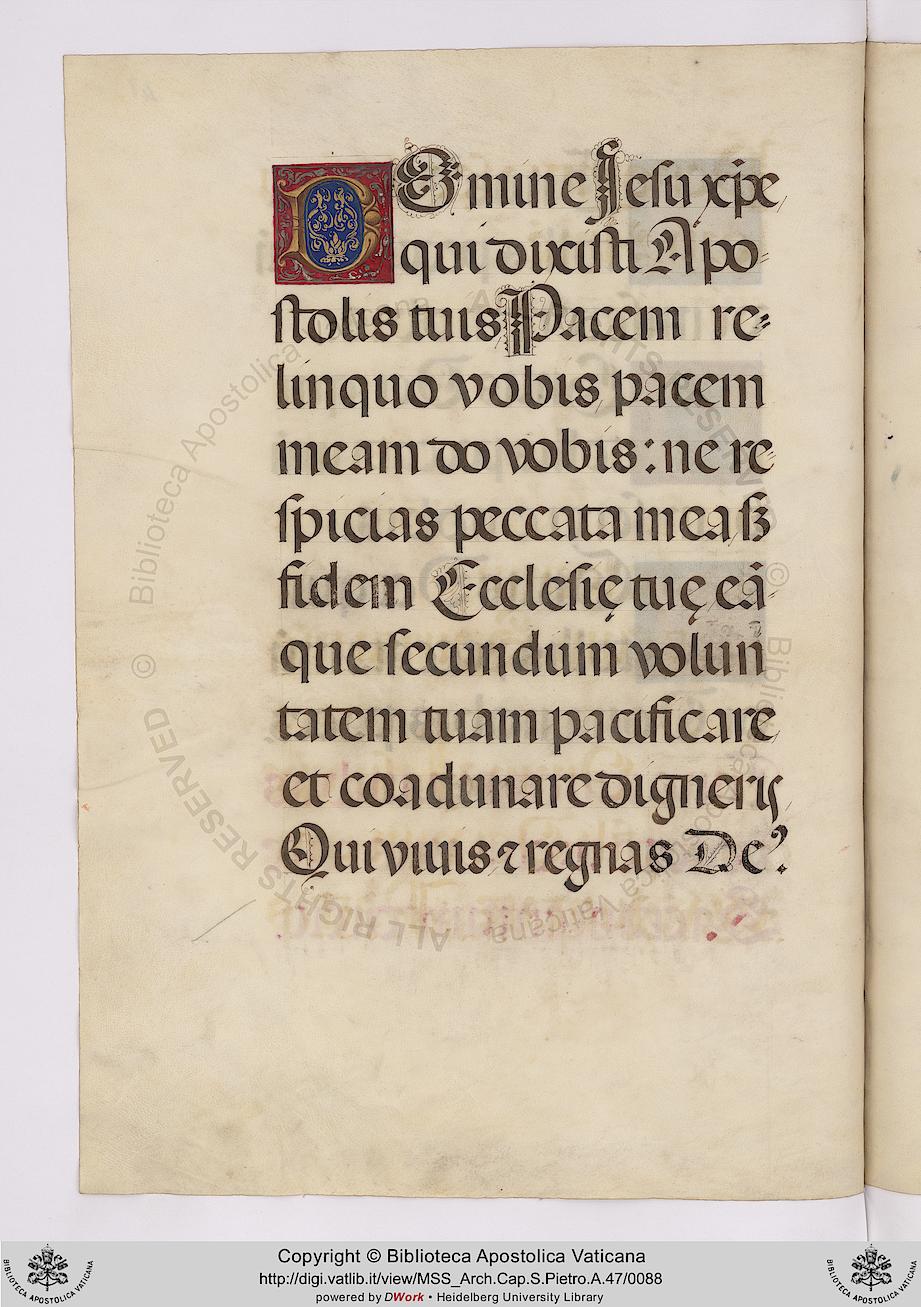 DOmine Jesu xp̄e,
qui dixisti Apo-
stolis tuis Pacem re-
linquo vobis, pacem
meam do vobis: ne re
spicias peccata mea sꝫ
fidem Ecclesię tuę eā-
que secundum volun
tatem tuam pacificare,
et coadunare digneris
Qui viuis ⁊ regnas De⁹.
© Biblioteca Apostolica Vaticana
ALL RIGHTS RESERVED
Copyright © Biblioteca Apostolica Vaticana
http://digi.vatlib.it/view/MSS_Arch.Cap.S.Pietro.A.47/0088
powered by DWork • Heidelberg University Library
BIBLIOTECA APOSTOLICA VATICANA
BIBLIOTECA APOSTOLICA VATICANA